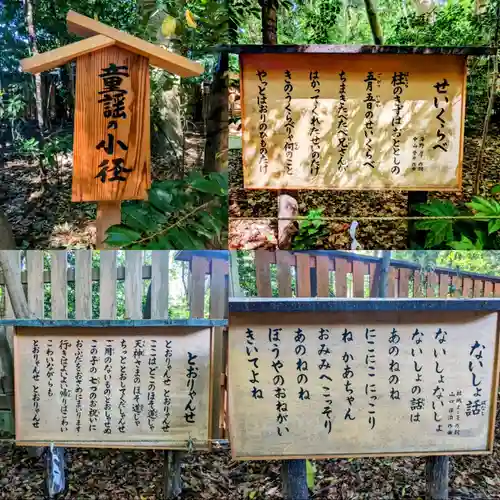 童謡の小径
せいくらべ
柱のきずはおととしの
五月五日のせいくらべ
ちまきたべたべ兄さんが
はかってくれたせいのたけ
きのうくらべりゃ何のこと
やっとはおりのひものたけ
とおりゃんせ
とおりゃんせ とおりゃんせ
ここはどこのほそ道じゃ
天神さまのほそ道じゃ
ちっととおしてくだしゃんせ
ご用のないものとおしゃせぬ
この子の七つのお祝いに
おふだをおさめにまいります
行きはよいよい帰りはこわい
こわいながらも
とおりゃんせ とおりゃんせ
ないしょ話
結城 よしを 作詞
山口 保治 作曲
ないしょないしょ
ないしょの話は
あのねのね
にこにこ にっこり
ね かあちゃん
おみみへ こっそり
あのねのね
ぼうやのおねがい
きいてよね